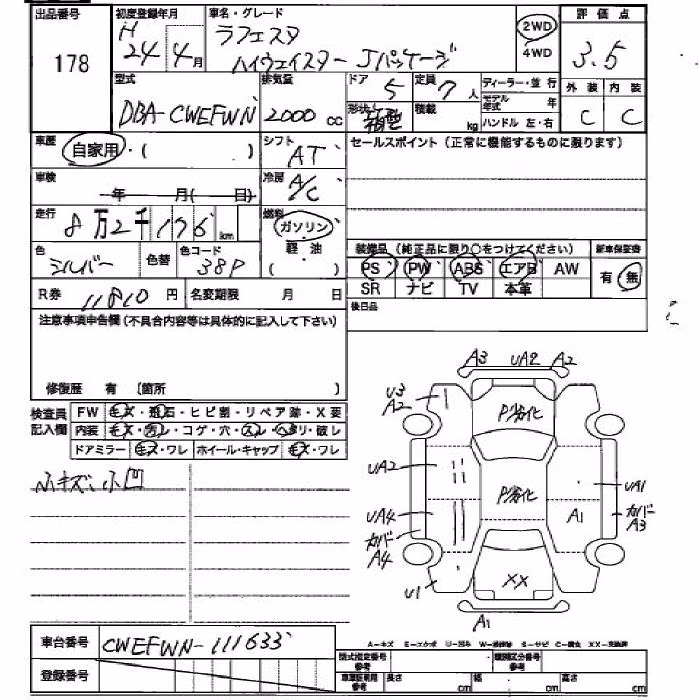 出品番号 178
初度登録年月 H 24年 4月
車名・グレード ラフェスタ
ハイウェイスター Jパッケージ
2WD
4WD
評価点 3.5
外装 内装
C C
型式 DBA-CWEFWN
排気量 2000 cc
ドア 5
定員 7人
形状
積載 kg
ディーラー・並行
モデル年式 年
ハンドル 左・右
車歴 自家用・( )
シフト AT
セールスポイント(正常に機能するものに限ります)
車検 年 月( 日)
冷房 A/C
走行 8万2千176 km
燃料 ガソリン・
軽油
( )
色 シルバー
色替
色コード 38P
装備品(純正品に限り○をつけてください) 新車保証書
PS PW ABS エアB AW
SR ナビ TV 本革
有・無
R券 11810円
名変期限 月 日
後日品
注意事項申告欄(不具合内容等は具体的に記入して下さい)
修復歴 有 〔箇所 〕
検査員記入欄
FW キズ・飛石・ヒビ割・リペア跡・X要
内装 キズ・汚レ・コゲ・穴・スレ・ヘタリ・破レ
ドアミラー キズ・ワレ ホイール・キャップ キズ・ワレ
小キズ、小凹
A3 UA2 A2
U3
A2
P劣化
UA2
P劣化
UA1
UA4
カバー
A4
A1
カバー
A3
U1
XX
A1
車台番号 CWEFWN-111633
登録番号
A-キズ E-エクボ U-凹み W-補修跡 S-サビ C-腐食 XX-交換済
型式指定番号 参考
類別区分番号 参考
車庫証明用 参考 長さ cm 幅 cm 高さ cm